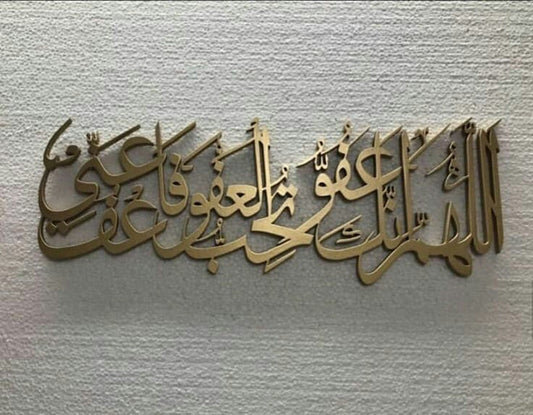 اللّٰهُمَّ إِنَّكَ عَفُوٌّ تُحِبُّ الْعَفْوَ فَاعْفُ عَنِّي